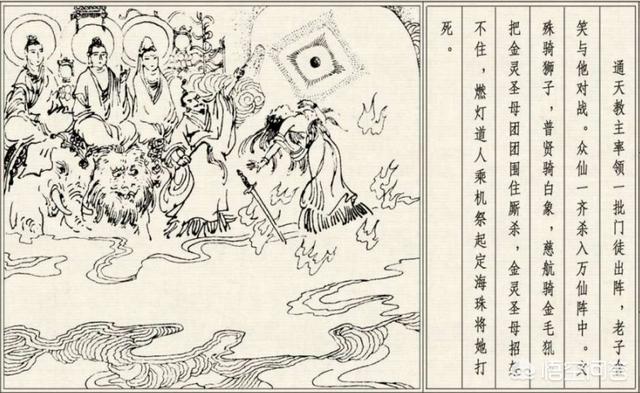 通天教主率领一批门徒出阵，老子含
笑与他对战。众仙一齐杀入万仙阵中。文
殊骑狮子，普贤骑白象，慈航骑金毛犼
把金灵圣母团团围住厮杀，金灵圣母招架
不住，燃灯道人乘机祭起定海珠将她打
死。
悟空问答